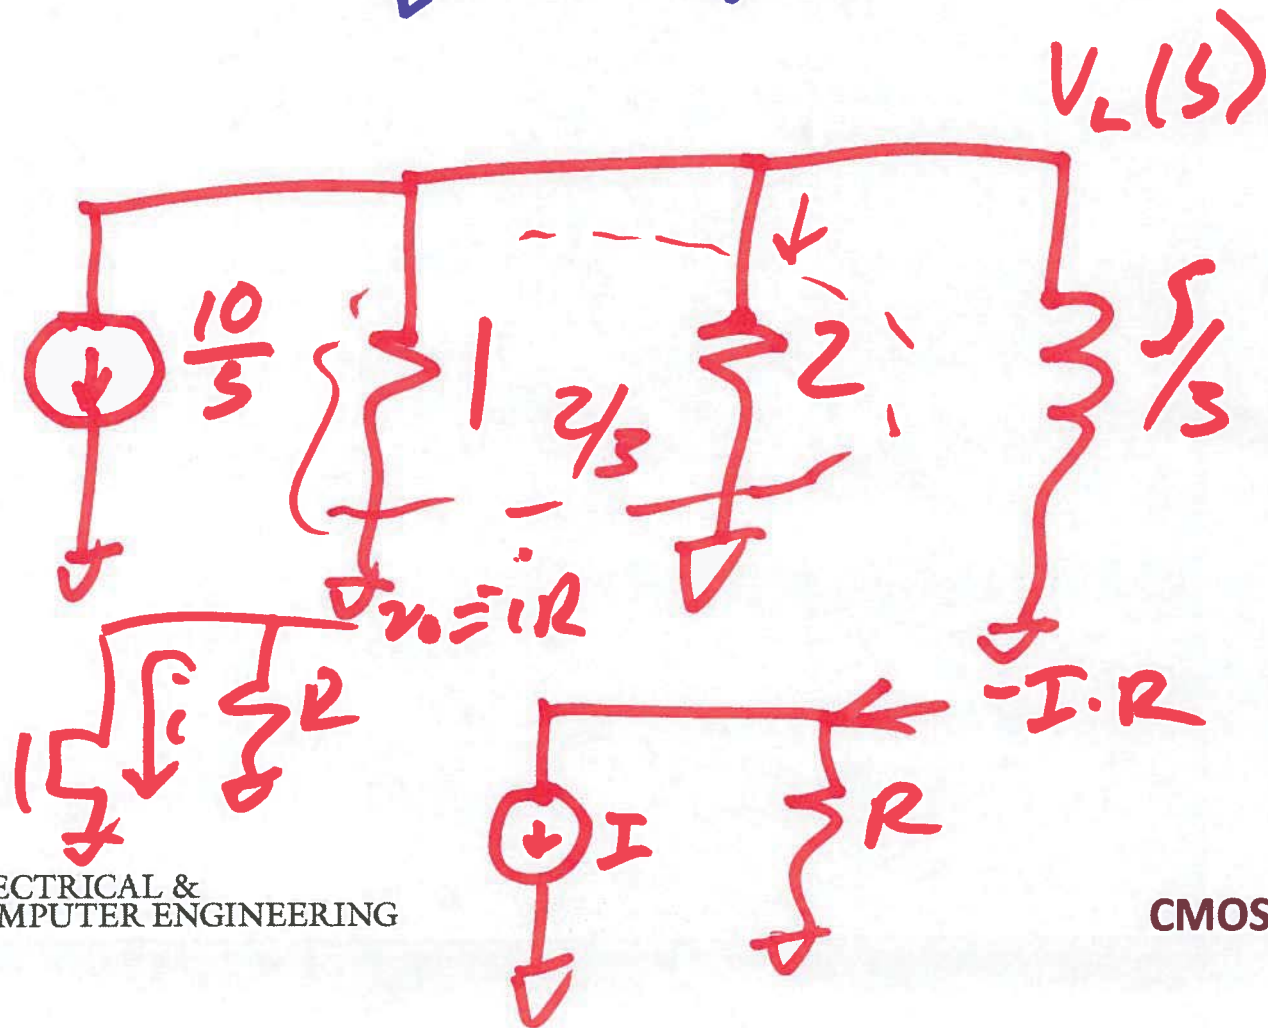 V_L(s)
10/s
1
2/3
2
s/3
v_o = iR
-I·R
1
i
R
I
R
ECTRICAL &
MPUTER ENGINEERING
CMOS